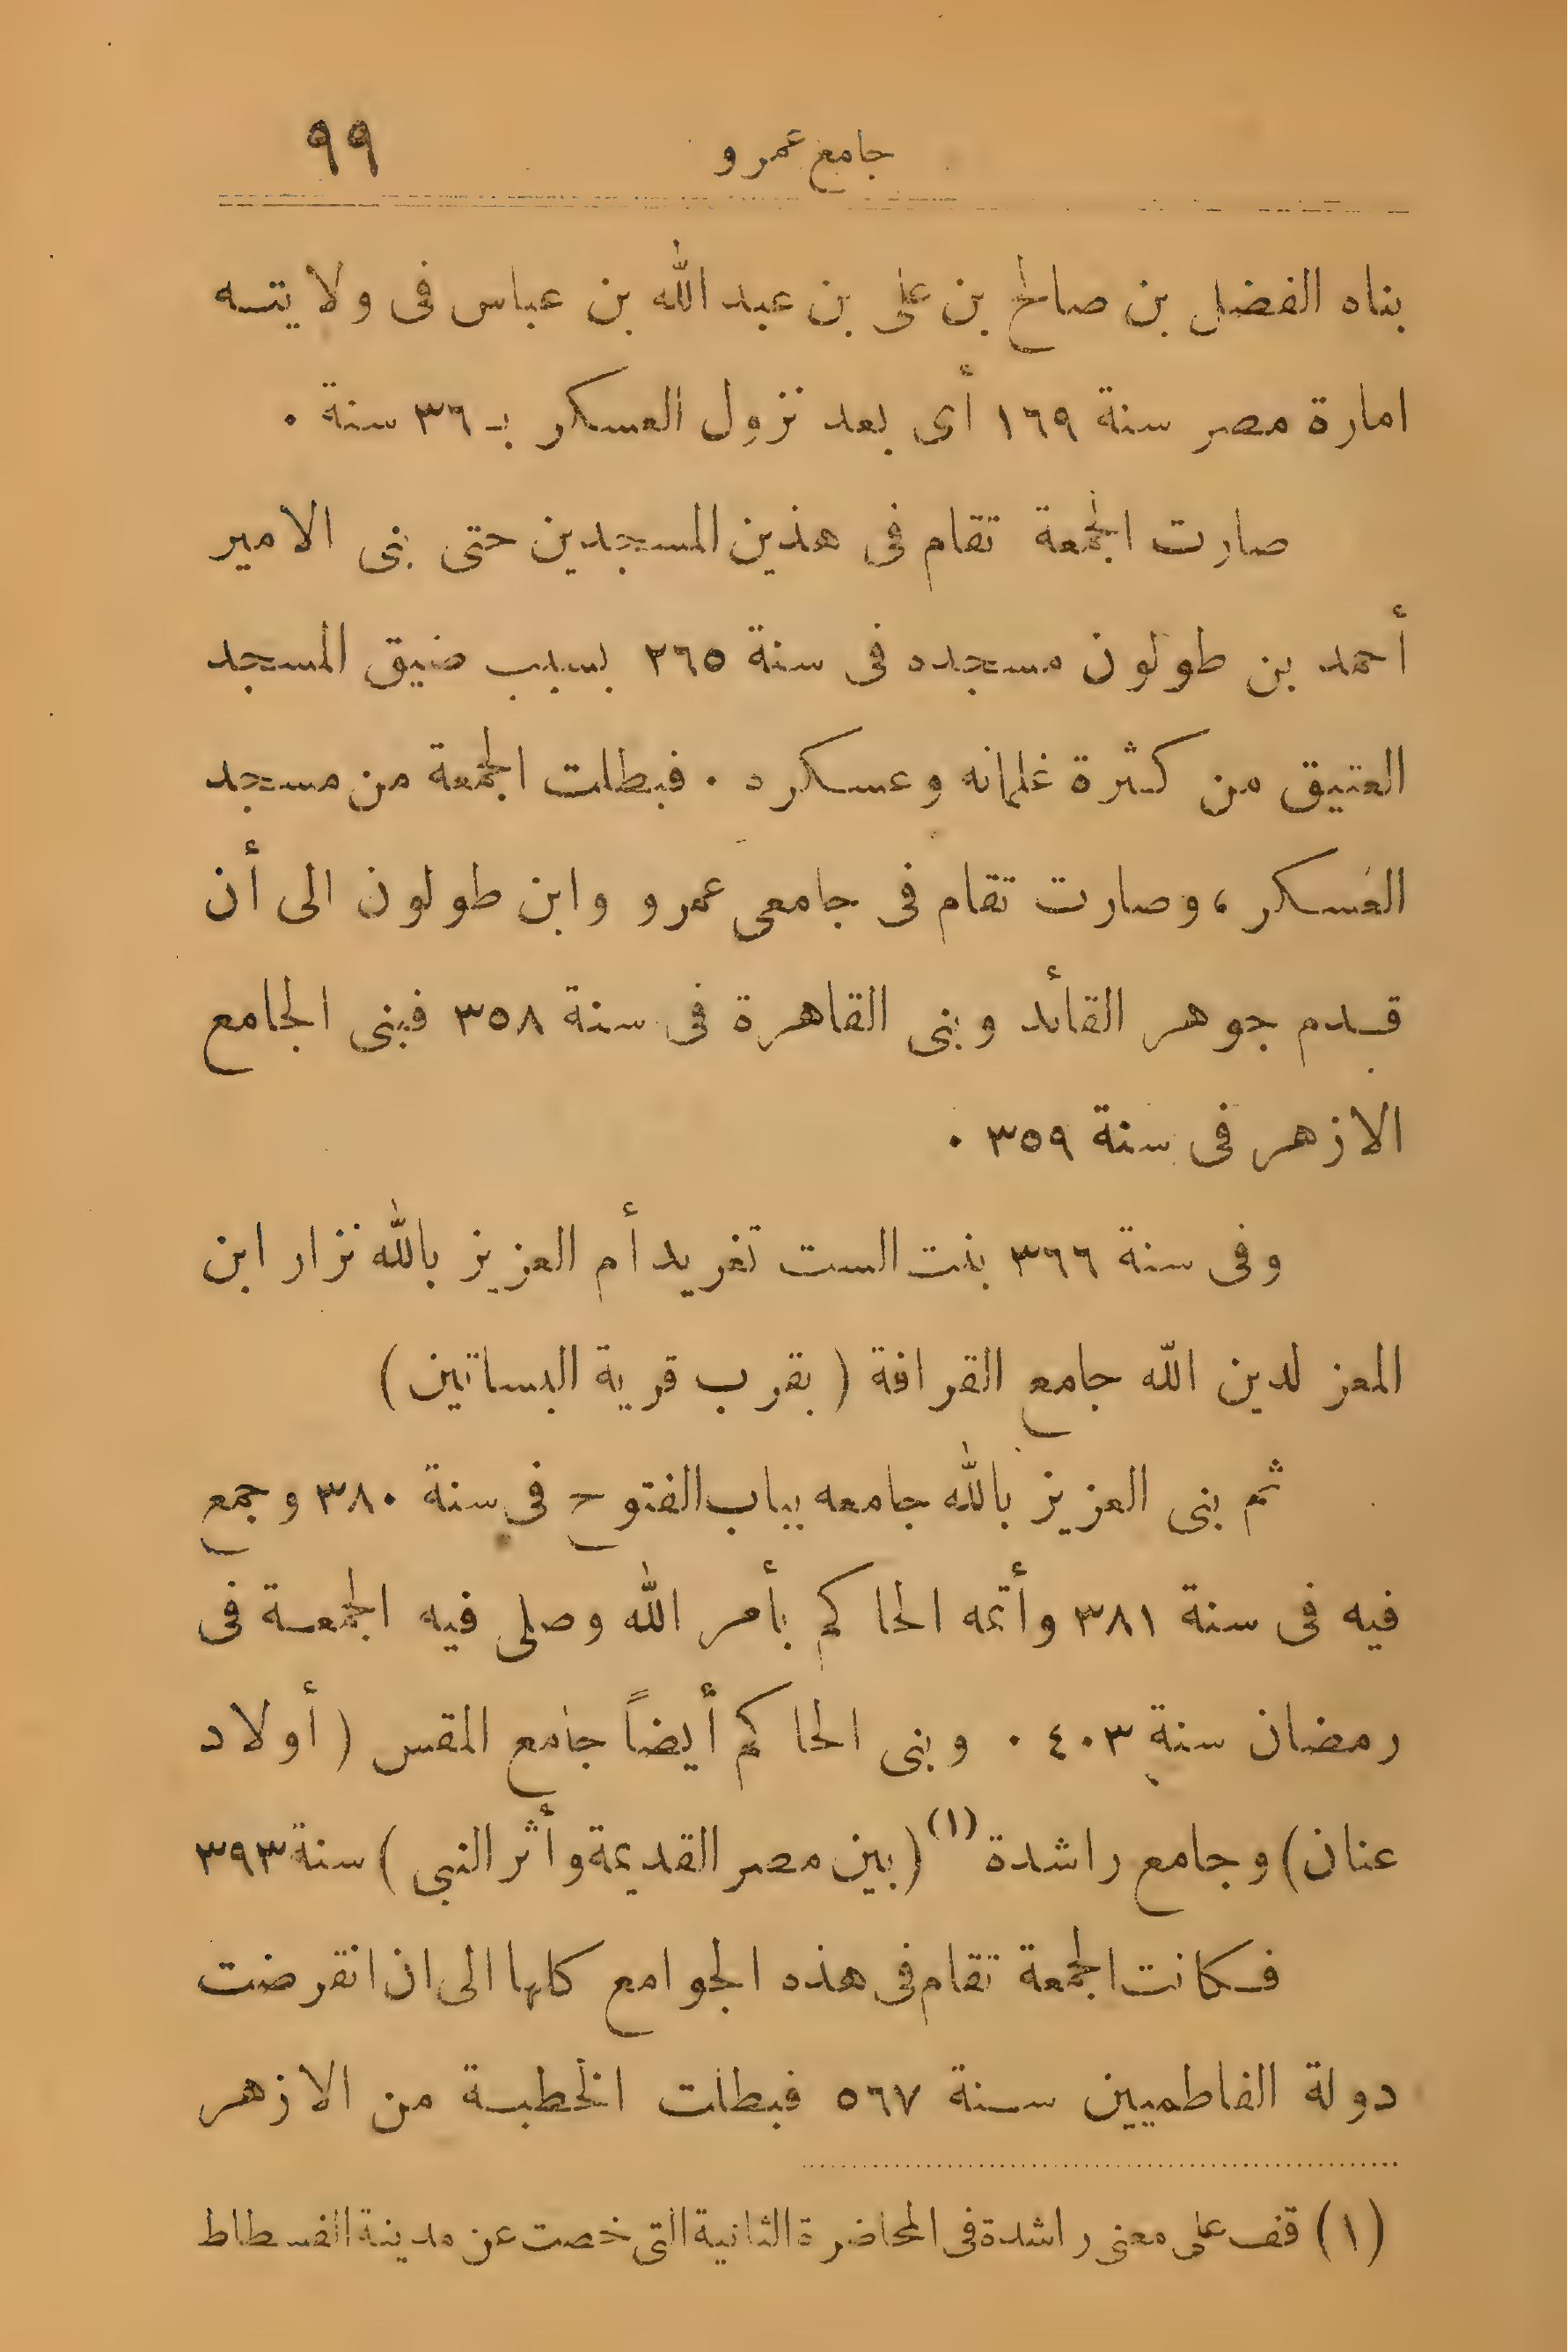 جامع عمرو ٩٩
بناه الفضل بن صالح بن على بن عبد الله بن عباس فى ولايته
امارة مصر سنة ١٦٩ أى بعد نزول العسكر بـ ٣٦ سنة .
صارت الجمعة تقام فى هذين المسجدين حتى بنى الامير
أحمد بن طولون مسجده فى سنة ٢٦٥ بسبب ضيق المسجد
العتيق من كثرة غلمانه وعسكره . فبطلت الجمعة من مسجد
العسكر ، وصارت تقام فى جامعى عمرو وابن طولون الى أن
قدم جوهر القائد وبنى القاهرة فى سنة ٣٥٨ فبنى الجامع
الازهر فى سنة ٣٥٩ .
وفى سنة ٣٦٦ بنت الست تغريد أم العزيز بالله نزار ابن
المعز لدين الله جامع القرافة ( بقرب قرية البساتين )
ثم بنى العزيز بالله جامعه بباب الفتوح فى سنة ٣٨٠ وجمع
فيه فى سنة ٣٨١ وأتمه الحاكم بأمر الله وصلى فيه الجمعة فى
رمضان سنة ٤٠٣ . وبنى الحاكم أيضاً جامع المقس ( أولاد
عنان ) وجامع راشدة (١) ( بين مصر القديمة وأثر النبي ) سنة ٣٩٣
فكانت الجمعة تقام فى هذه الجوامع كلها الى ان انقرضت
دولة الفاطميين سنة ٥٦٧ فبطلت الخطبة من الازهر
(١) قف على معنى راشدة فى المحاضرة الثانية التى خصت عن مدينة الفسطاط